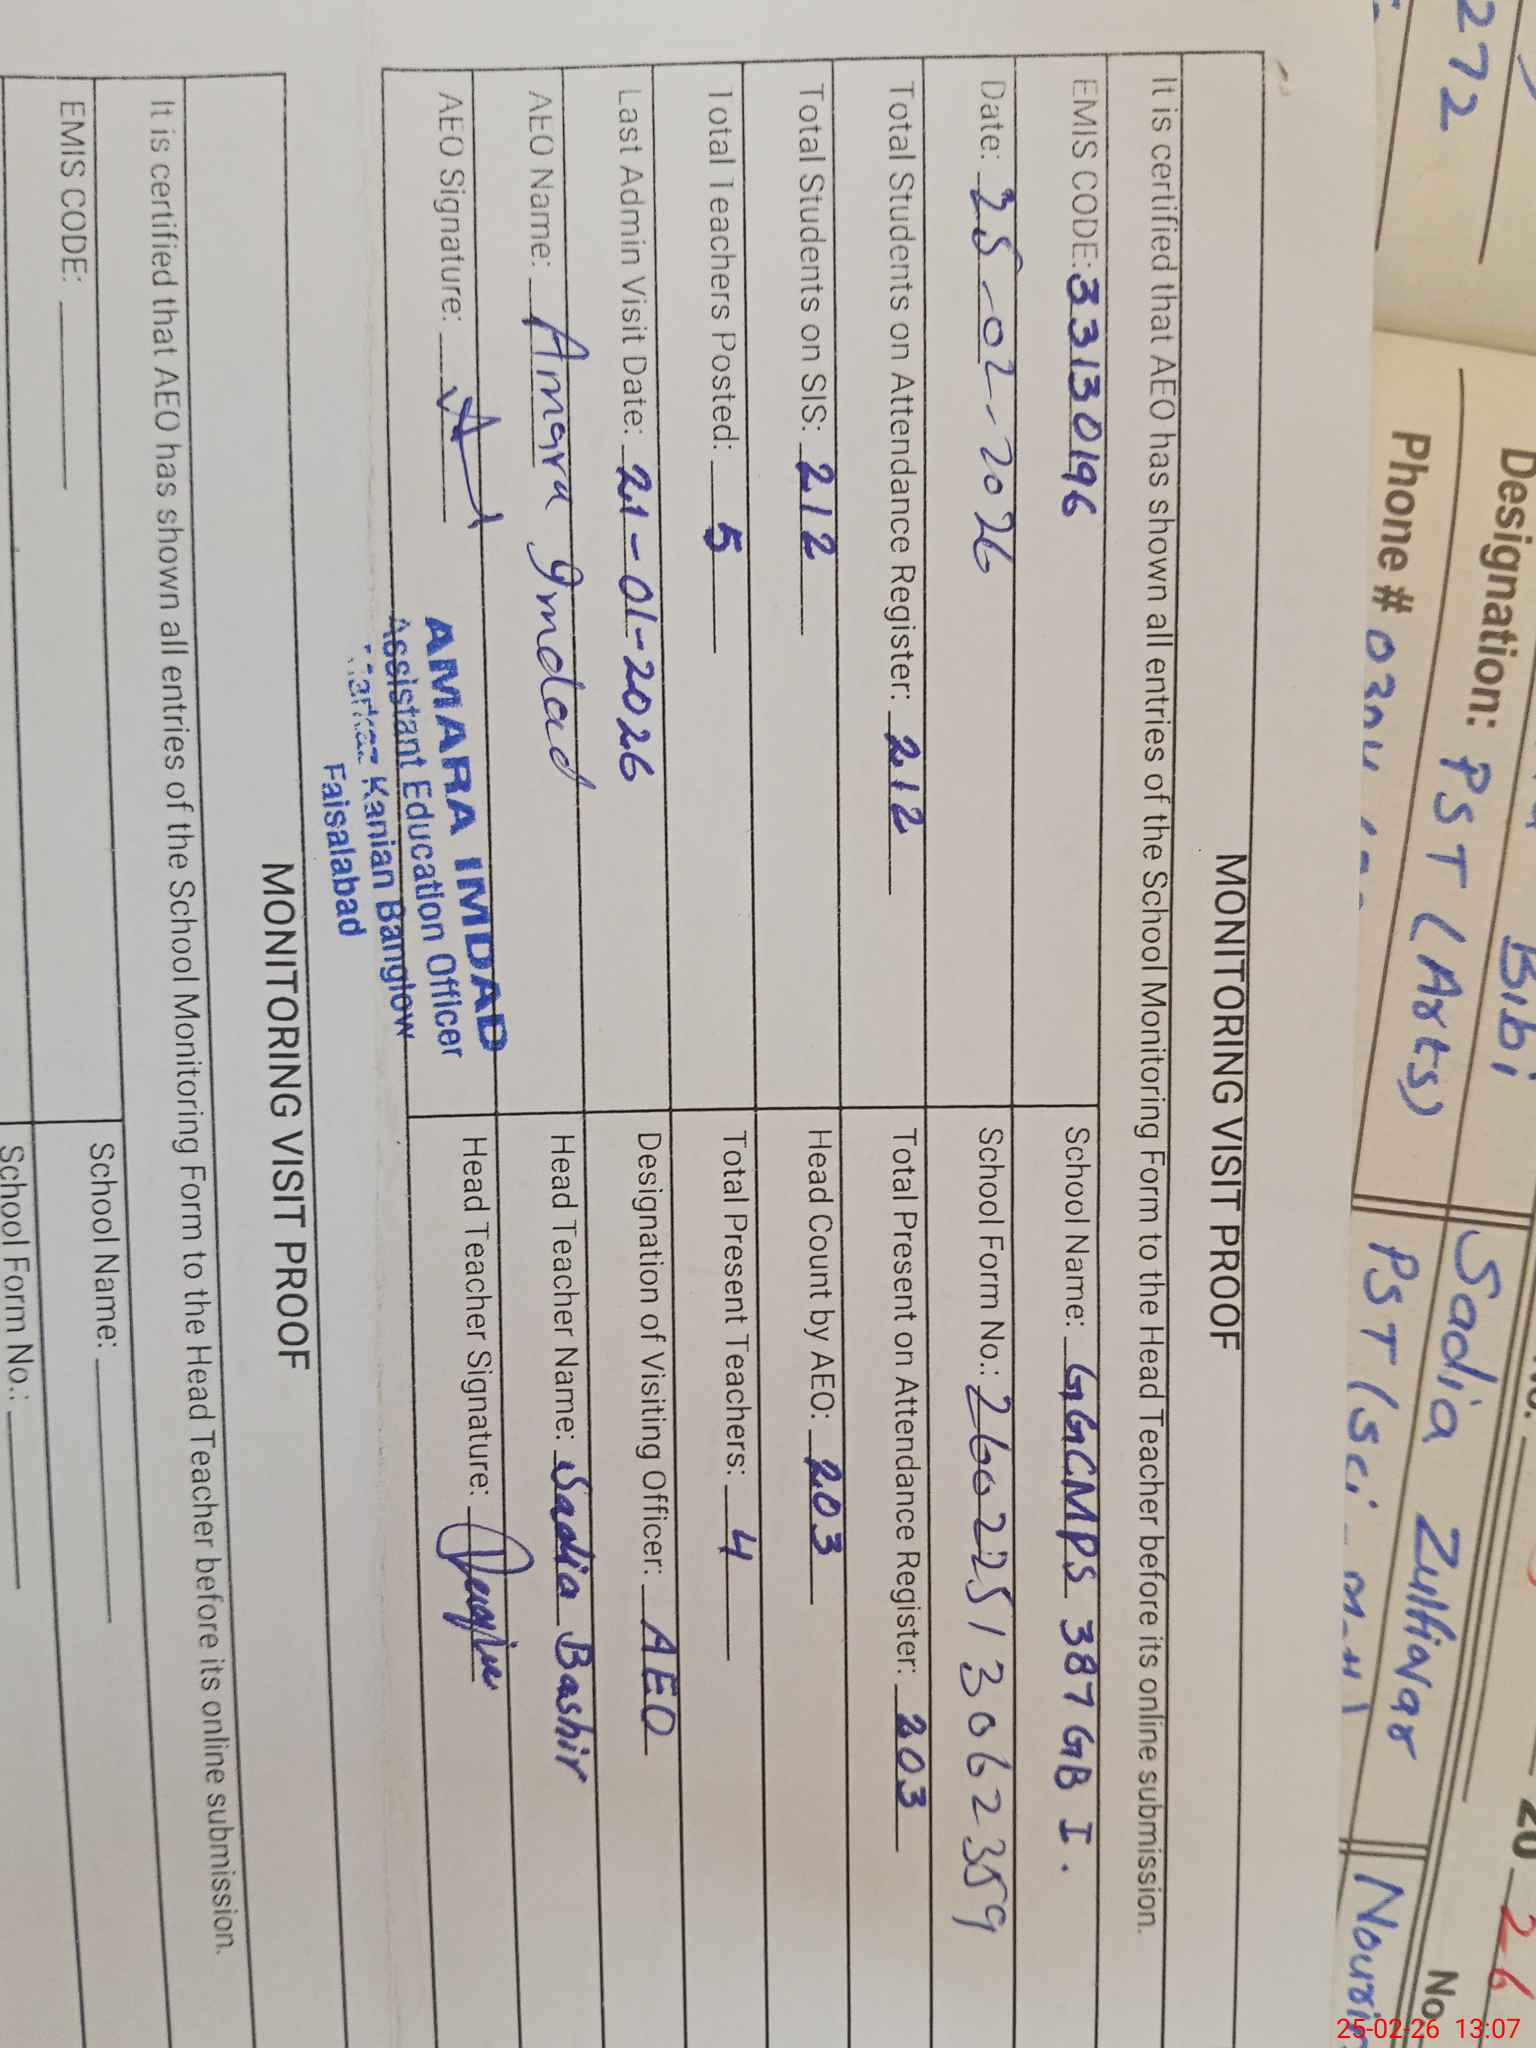 MONITORING VISIT PROOF
It is certified that AEO has shown all entries of the School Monitoring Form to the Head Teacher before its online submission.
EMIS CODE: 33130196 School Name: GGCMPS 387 GB I.
Date: 25-02-2026 School Form No.: 26022513062359
Total Students on Attendance Register: 212 Total Present on Attendance Register: 203
Total Students on SIS: 212 Head Count by AEO: 203
Total Teachers Posted: 5 Total Present Teachers: 4
Last Admin Visit Date: 21-01-2026 Designation of Visiting Officer: AEO
AEO Name: Amara Imdad Head Teacher Name: Sadia Bashir
AEO Signature: Head Teacher Signature:
AMARA IMDAD
Assistant Education Officer
Markaz Kanian Banglow
Faisalabad
MONITORING VISIT PROOF
It is certified that AEO has shown all entries of the School Monitoring Form to the Head Teacher before its online submission.
EMIS CODE: School Name:
School Form No.:
272
Bibi
Designation: PST (Arts) Sadia Zulfiqar
Phone # PST (Sci
20 26
No
25-02-26 13:07